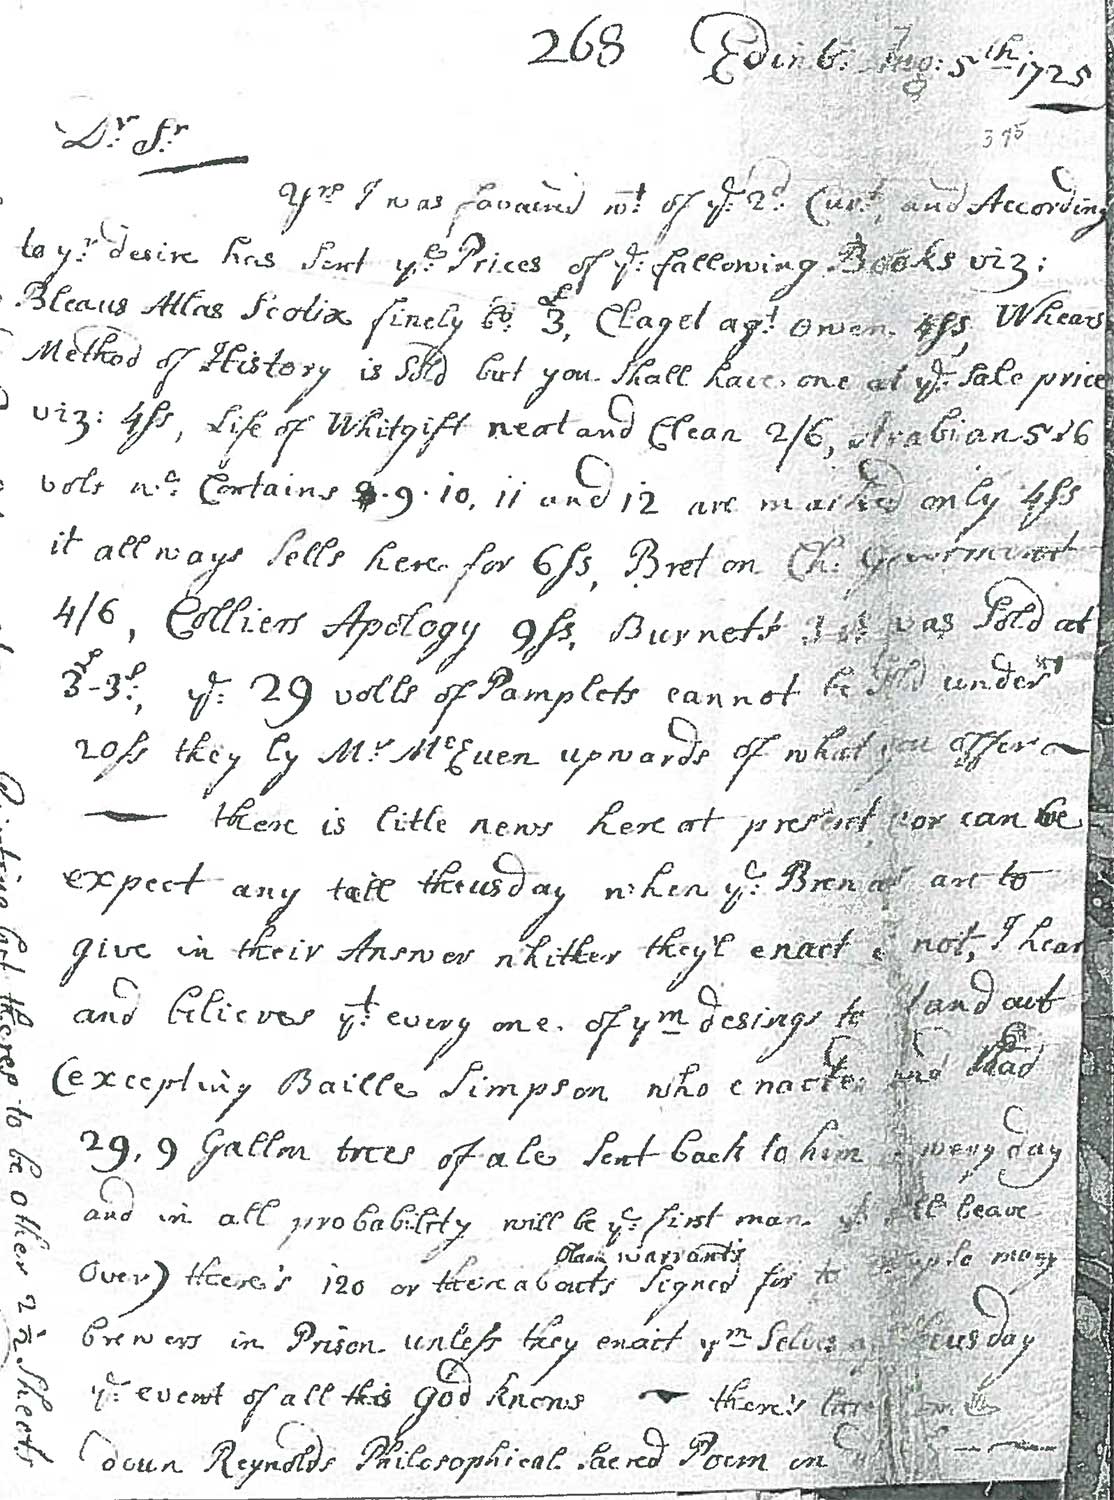 268 Edinb: Aug: 5th 1725
375
Dr. Sr.
Yrs I was favoured wt. of ye. 2d. Curt, and According
to yr. desire has sent ye. Prices of ye. following Books viz:
Bleaus Atlas Scotiæ finely bo: £3, Clagel agt. owen 4ss, Whears
Method of History is Sold but you shall have one at ye. sale price
viz: 4ss, Life of Whitgift neat and Clean 2/6, Arabian 5 &6
vols wc. Contains 8. 9. 10, 11 and 12 are marked only 4ss
it allways sells here for 6ss, Bret on Ch: Goverment
4/6, Colliers Apology 9ss, Burnets was Sold at
£3-3s:, ye. 29 volls of Pamplets cannot be sold under
20ss they ly Mr. McEuen upwards of what you offer
there is litle news here at present, nor can we
expect any till theusday when ye. Brewars are to
give in their Answer whither they'l enact or not, I hear
and believes yt. every one of ym desings to stand out
(excepting Baille Simpson who enacted and had
29, 9 Gallon trees of ale sent back to him every day
and in all probability will be ye. first man yt. will leave
over) there's 120 or thereabouts blank warrants signed for to many
brewers in Prison unless they enact ym Selves theusday
ye. event of all this God knows there's
doun Reynolds Philosophical Sacred Poem in
Printing but theres to be other 2 1/2 Sheets